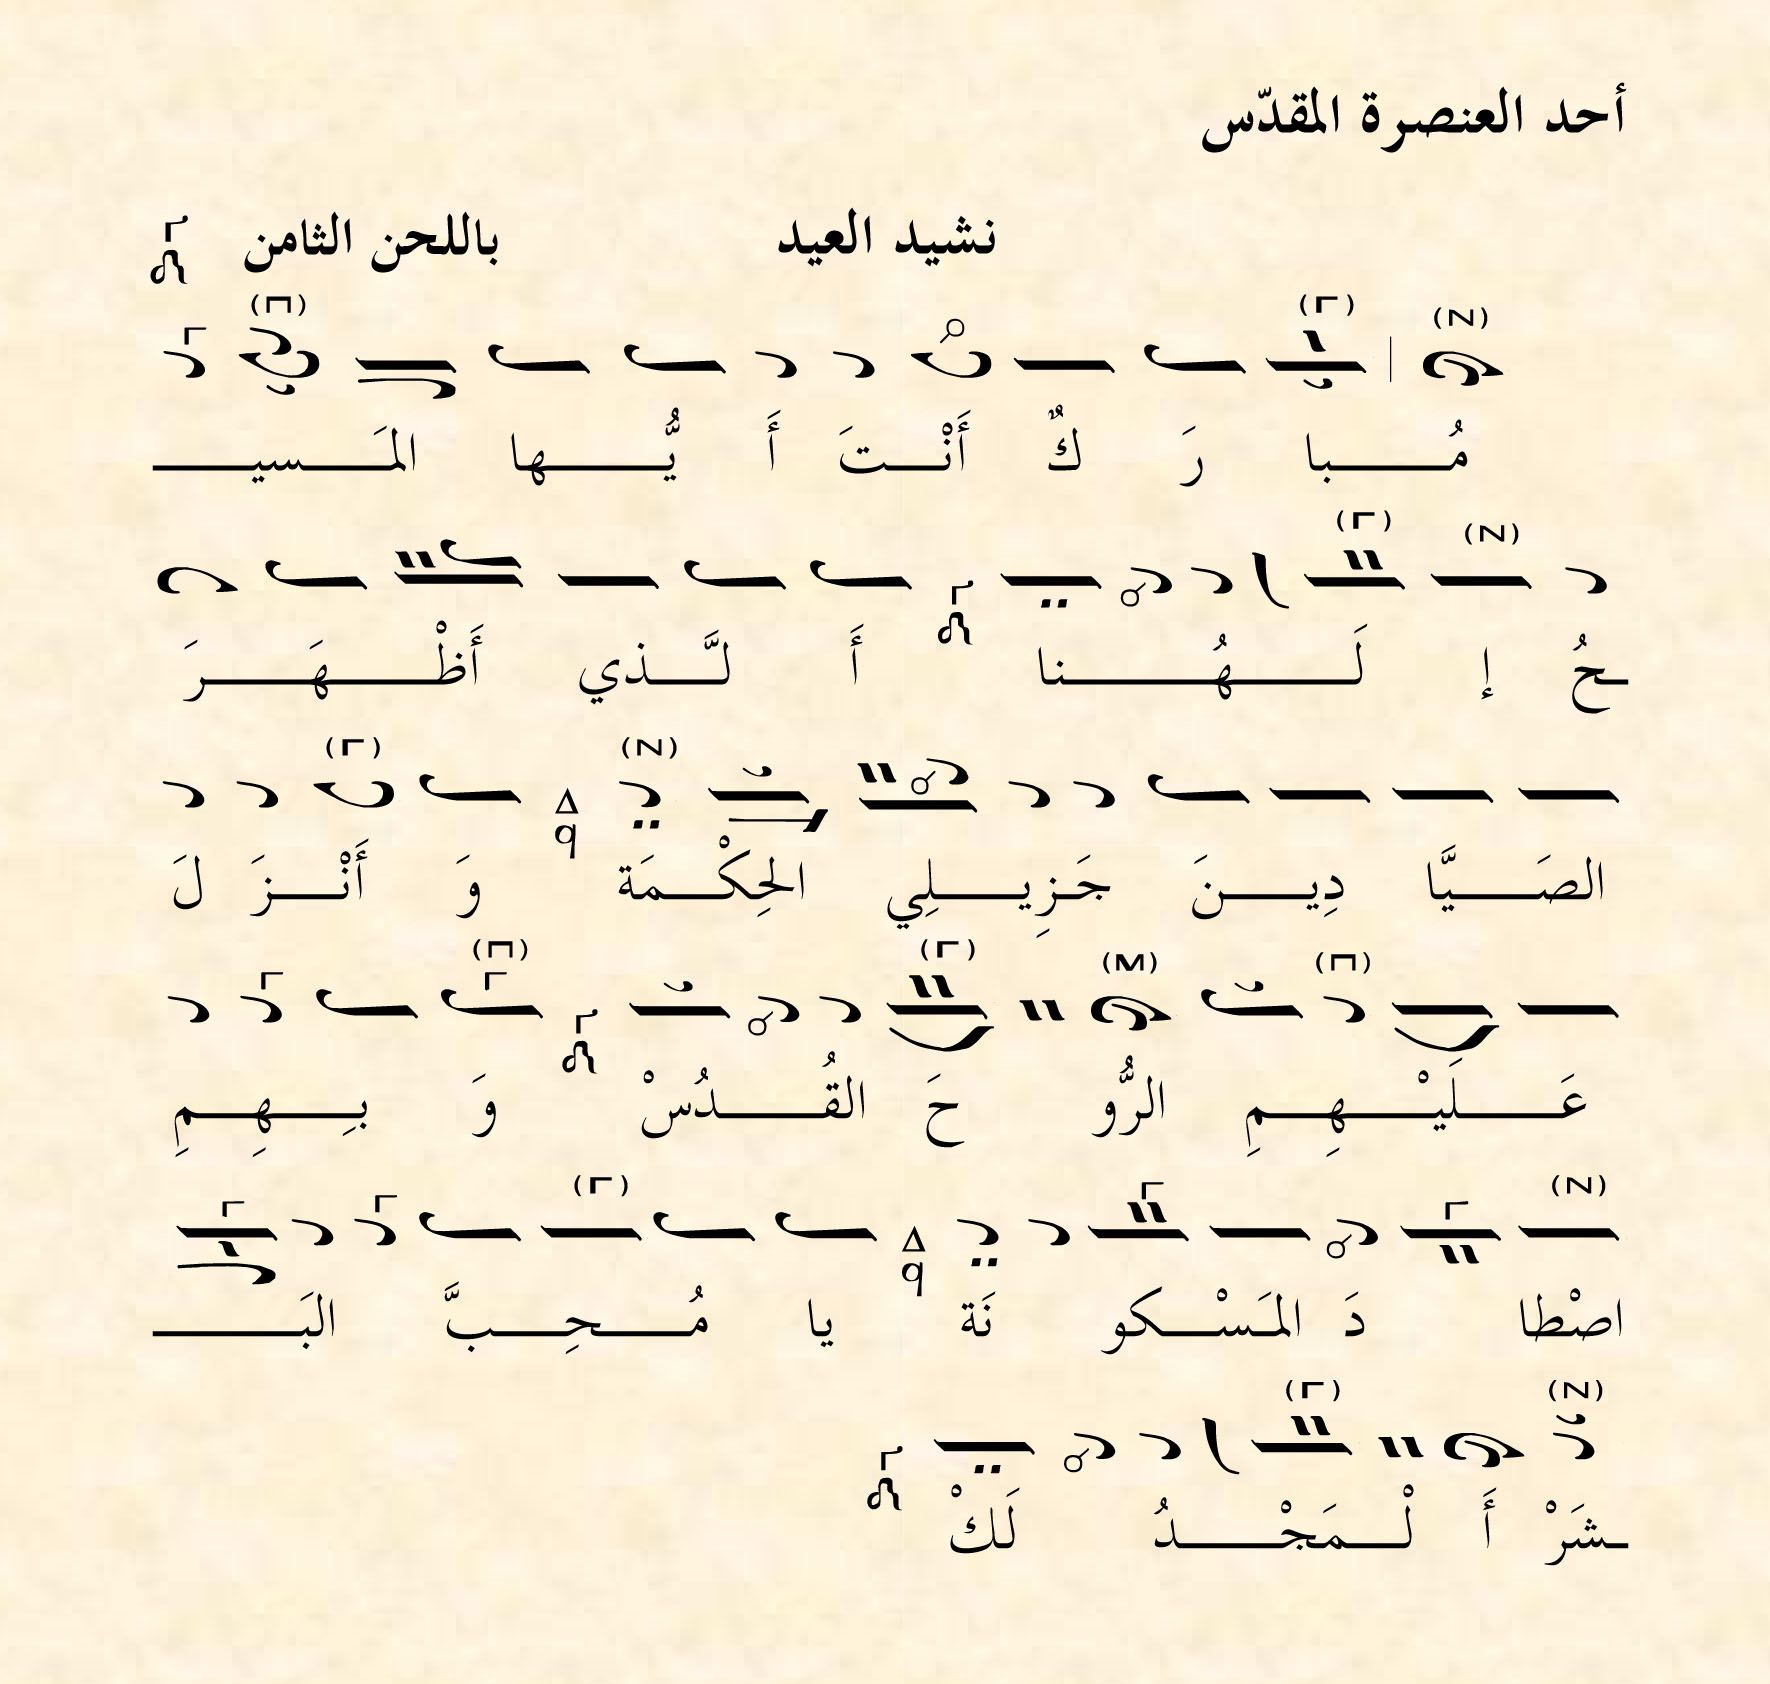 أحد العنصرة المقدّس
نشيد العيد باللحن الثامن
مُــبا رَ كٌ أَنْــتَ أَ يُّــها المَــسيــ
ـحُ إ لَــهُــنا أَ لَّــذي أَظْــهَــرَ
الصَــيَّا دِيــنَ جَــزِيــلِي الحِكْــمَة وَ أَنْــزَ لَ
عَــلَيْــهِــمِ الرُّو حَ القُــدُسْ وَ بِــهِــمِ
اصْطا دَ المَسْــكو نَة يا مُــحِــبَّ البَــ
ـشَرْ أَ لْــمَجْــدُ لَكْ